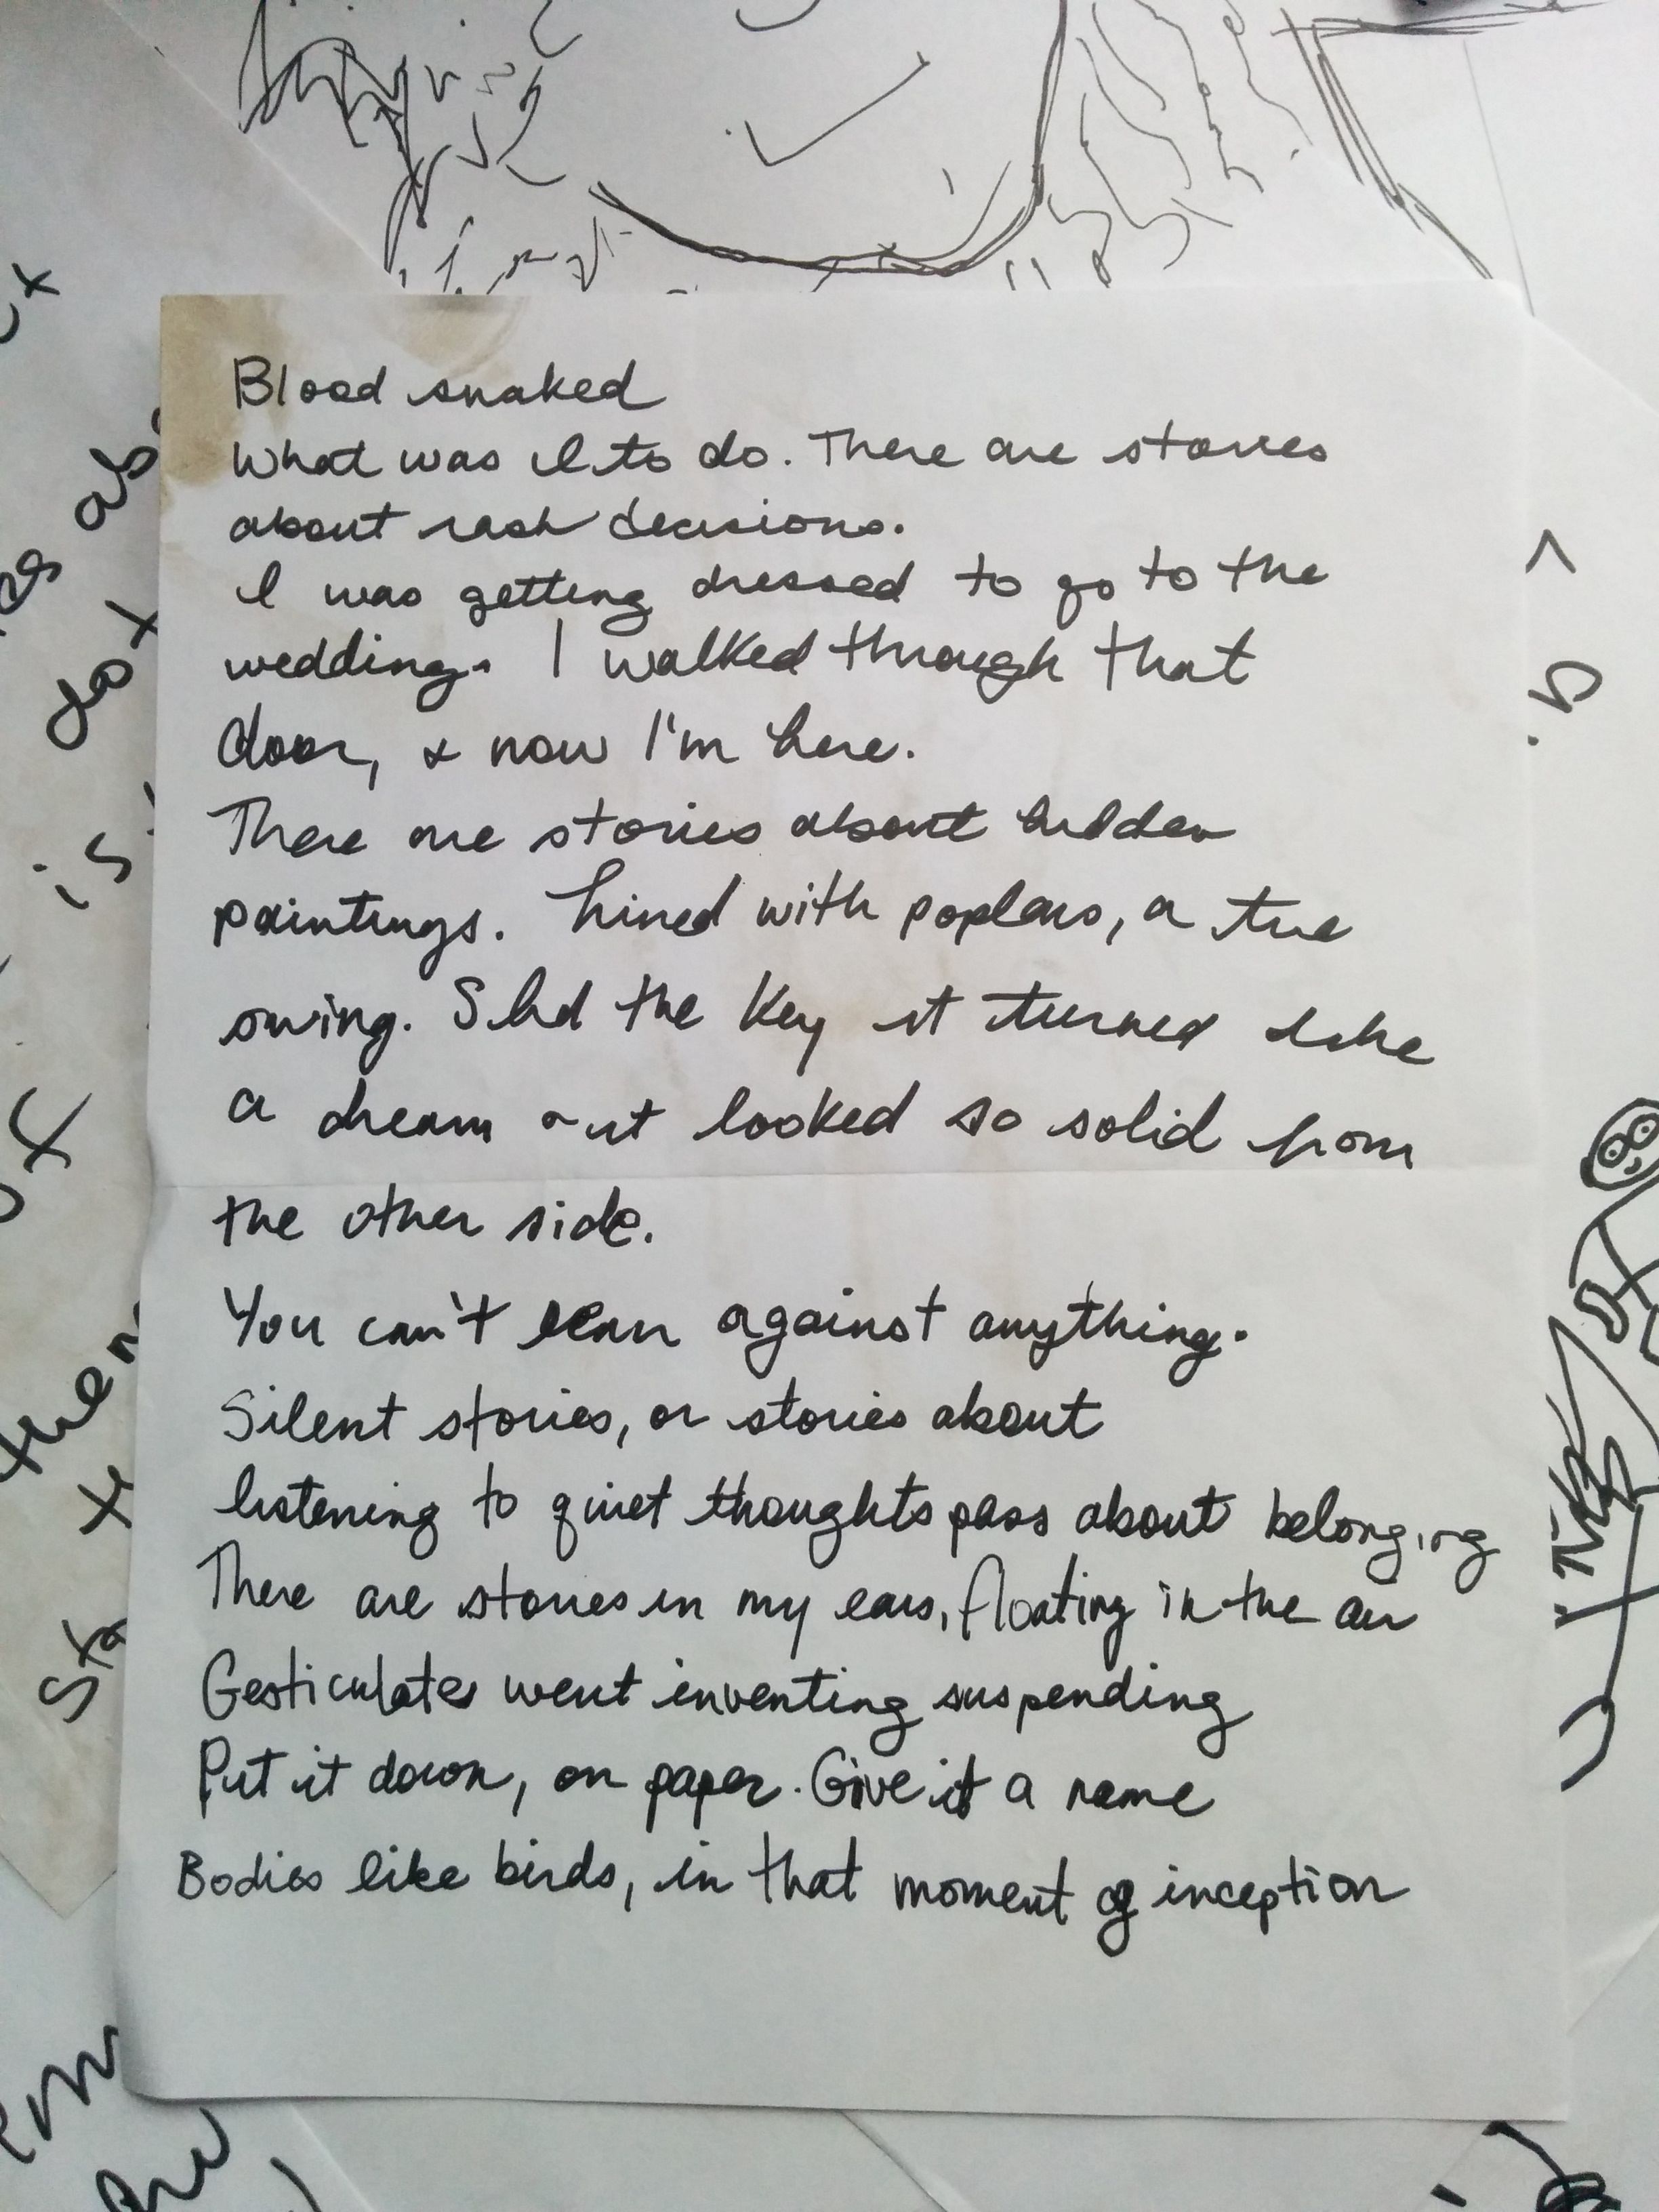 Blood snaked
What was I to do. There are stories
about rash decisions.
I was getting dressed to go to the
wedding. I walked through that
door, & now I'm here.
There are stories about hidden
paintings. Lined with poplars, a tree
swing. Slid the key it turned like
a dream it looked so solid from
the other side.
You can't lean against anything.
Silent stories, or stories about
listening to quiet thoughts pass about belonging
There are stories in my ears, floating in the air
Gesticulates went inventing suspending
Put it down, on paper. Give it a name
Bodies like birds, in that moment of inception
is